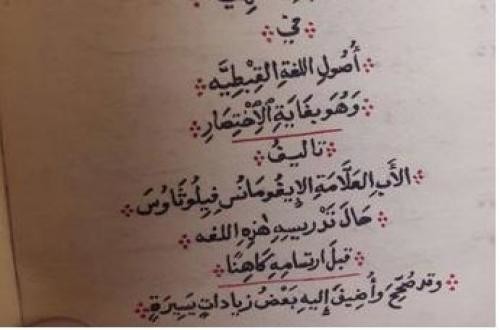 في
أُصُولِ اللغةِ القِبْطِيَّه
وَهُوَ بِغَايَةِ الِاخْتِصَارِ
تاليفُ
الأَبِ العَلَّامَةِ الإِيغُومَانُسِ فِيلُوثَاوُسَ
حَالَ تَدْرِيسِهِ هٰذِهِ اللغه
قبلَ ارتسامِهِ كَاهِنًا
وقد صُحِّحَ وأُضِيفَ إِليهِ بَعْضُ زياداتٍ يَسِيرَةٍ